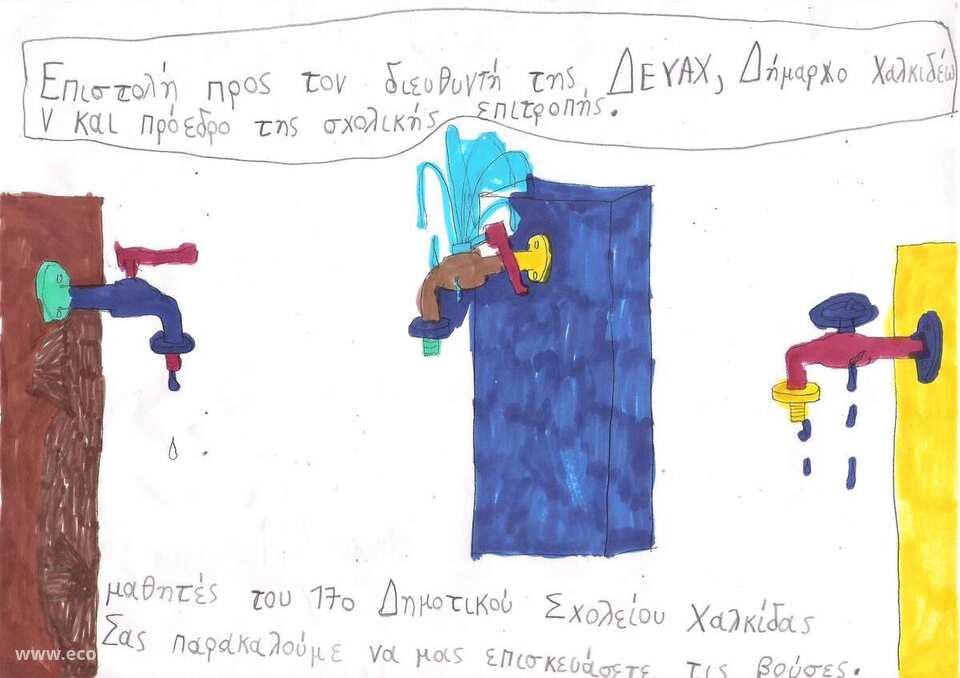 Επιστολή προς τον διευθυντή της ΔΕΥΑΧ, Δήμαρχο Χαλκιδέω
ν και πρόεδρο της σχολικής επιτροπής.
μαθητές του 17ο Δημοτικού Σχολείου Χαλκίδας
Σας παρακαλούμε να μας επισκευάσετε τις βρύσες.
www.eco